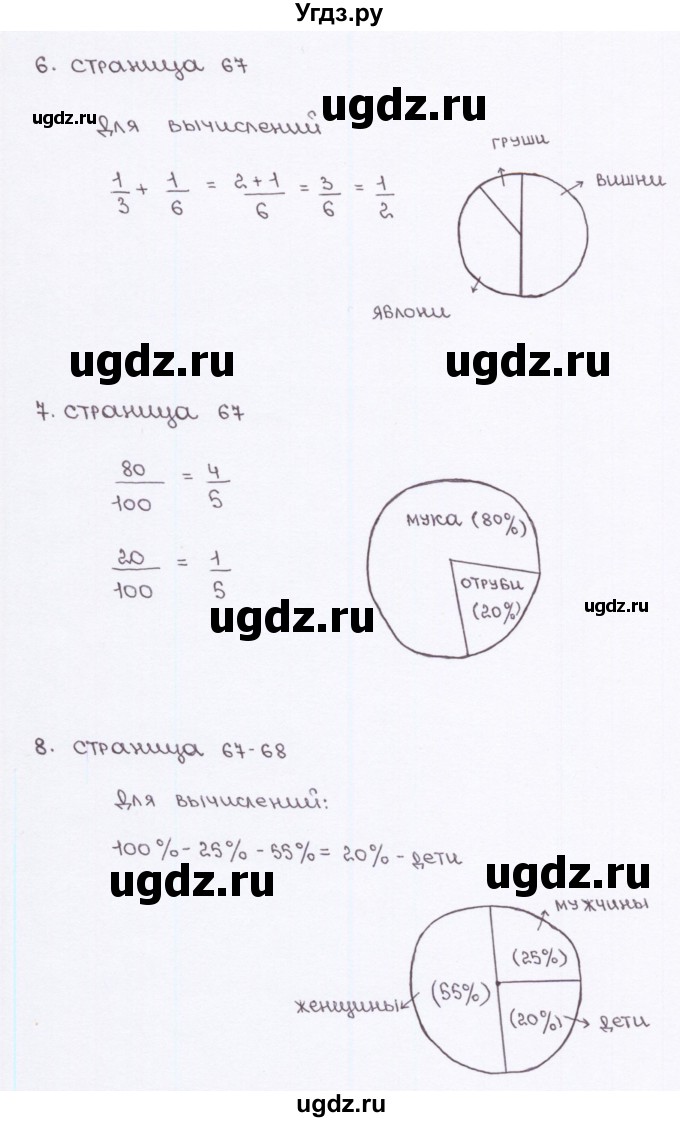 Угдз.ру
6. страница 67
ugdz.ru
ugdz.ru
для вычислений
груши
вишни
1/3 + 1/6 = 2+1/6 = 3/6 = 1/2
яблони
ugdz.ru
ugdz.ru
7. страница 67
80/100 = 4/5
мука (80%)
20/100 = 1/5
отруби
(20%)
ugdz.ru
ugdz.ru
8. страница 67-68
для вычислений:
100%-25%-55%=20%-дети
ugdz.ru
ugdz.ru
мужчины
(25%)
женщины
(55%)
(20%)
дети
ugdz.ru